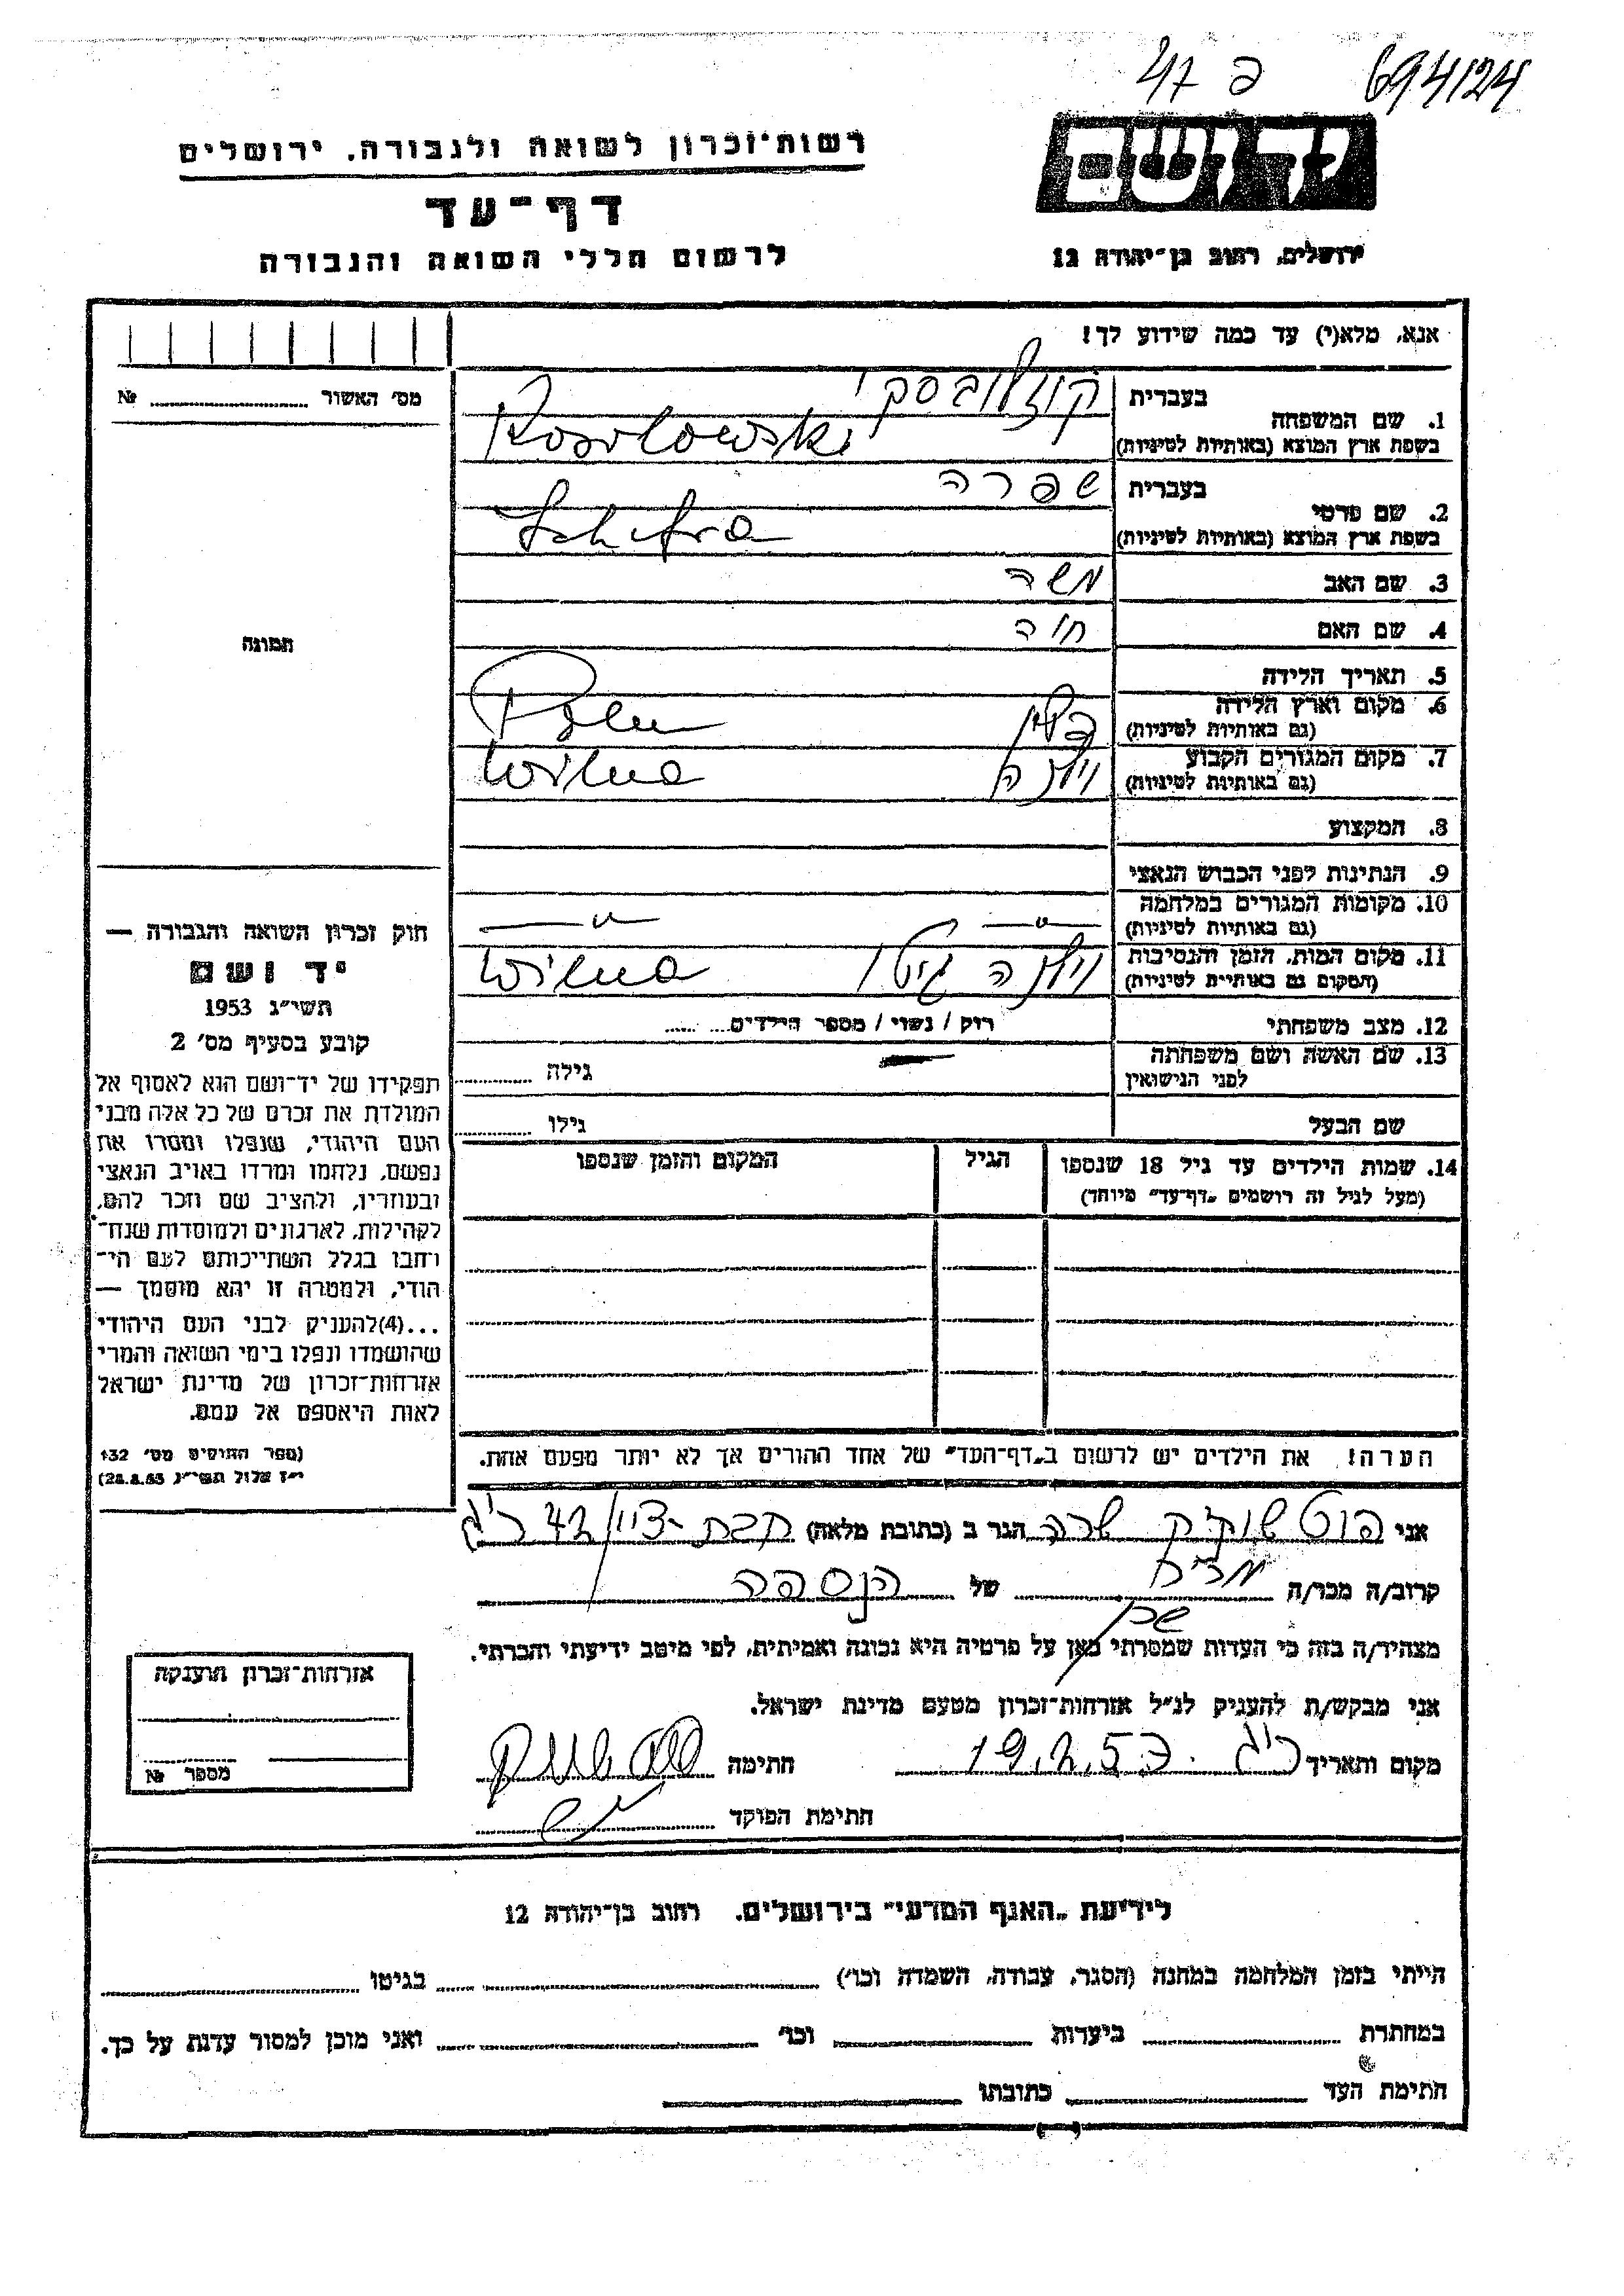 694124 פ 47
רשות־זכרון לשואה ולגבורה, ירושלים
דף־עד
לרשום חללי השואה והגבורה
יד ושם
ירושלים, רחוב בן־יהודה 12
אנא, מלא(י) עד כמה שידוע לך!
מס׳ האשור № ........
1. שם המשפחה
בעברית קוזלובסקי
בשפת ארץ המוצא (באותיות לטיניות) Koslowski
2. שם פרטי
בעברית שפרה
בשפת ארץ המוצא (באותיות לטיניות) Schifra
3. שם האב משה
4. שם האם חיה
5. תאריך הלידה
6. מקום וארץ הלידה
(גם באותיות לטיניות) פולין Polen
7. מקום המגורים הקבוע
(גם באותיות לטיניות) וילנה Wilna
8. המקצוע
9. הנתינות לפני הכבוש הנאצי
10. מקומות המגורים במלחמה
(גם באותיות לטיניות) —״— —״—
11. מקום המות, הזמן והנסיבות
(המקום גם באותיות לטיניות) וילנה גיטו Wilna
12. מצב משפחתי רוק / נשוי / מספר הילדים........
13. שם האשה ושם משפחתה
לפני הנישואין גילה ........
שם הבעל גילו ........
14. שמות הילדים עד גיל 18 שנספו
(מעל לגיל זה רושמים „דף־עד״ מיוחד)
הגיל
המקום והזמן שנספו
הערה! את הילדים יש לרשום ב„דף־העד״ של אחד ההורים אך לא יותר מפעם אחת.
תמונה
חוק זכרון השואה והגבורה —
יד ושם
תשי״ג 1953
קובע בסעיף מס׳ 2
תפקידו של יד־ושם הוא לאסוף אל
המולדת את זכרם של כל אלה מבני
העם היהודי, שנפלו ומסרו את
נפשם, נלחמו ומרדו באויב הנאצי
ובעוזריו, ולהציב שם וזכר להם,
לקהילות, לארגונים ולמוסדות שנח־
רחבו בגלל השתייכותם לעם הי־
הודי, ולמטרה זו יהא מוסמך —
...(4)להעניק לבני העם היהודי
שהושמדו ונפלו בימי השואה והמרי
אזרחות־זכרון של מדינת ישראל
לאות היאספם אל עמם.
(ספר החוקים מס׳ 132
י״ז אלול תשי״ג 28.8.53)
אני שרה הגר ב (כתובת מלאה) 42 ר״ג
קרוב/ה מכר/ה של הנספה
שכן
מצהיר/ה בזה כי העדות שמסרתי כאן על פרטיה היא נכונה ואמיתית, לפי מיטב ידיעתי והכרתי.
אני מבקש/ת להעניק לנ״ל אזרחות־זכרון מטעם מדינת ישראל.
מקום ותאריך ר״ג חתימה
חתימת הפוקד
אזרחות־זכרון הוענקה
מספר №
לידיעת „האגף המדעי״ בירושלים, רחוב בן־יהודה 12
הייתי בזמן המלחמה במחנה (הסגר, עבודה, השמדה וכו׳) ........ בגיטו ........
במחתרת ........ ביערות ........ וכו׳ ........ ואני מוכן למסור עדות על כך.
חתימת העד ........ כתובתו ........